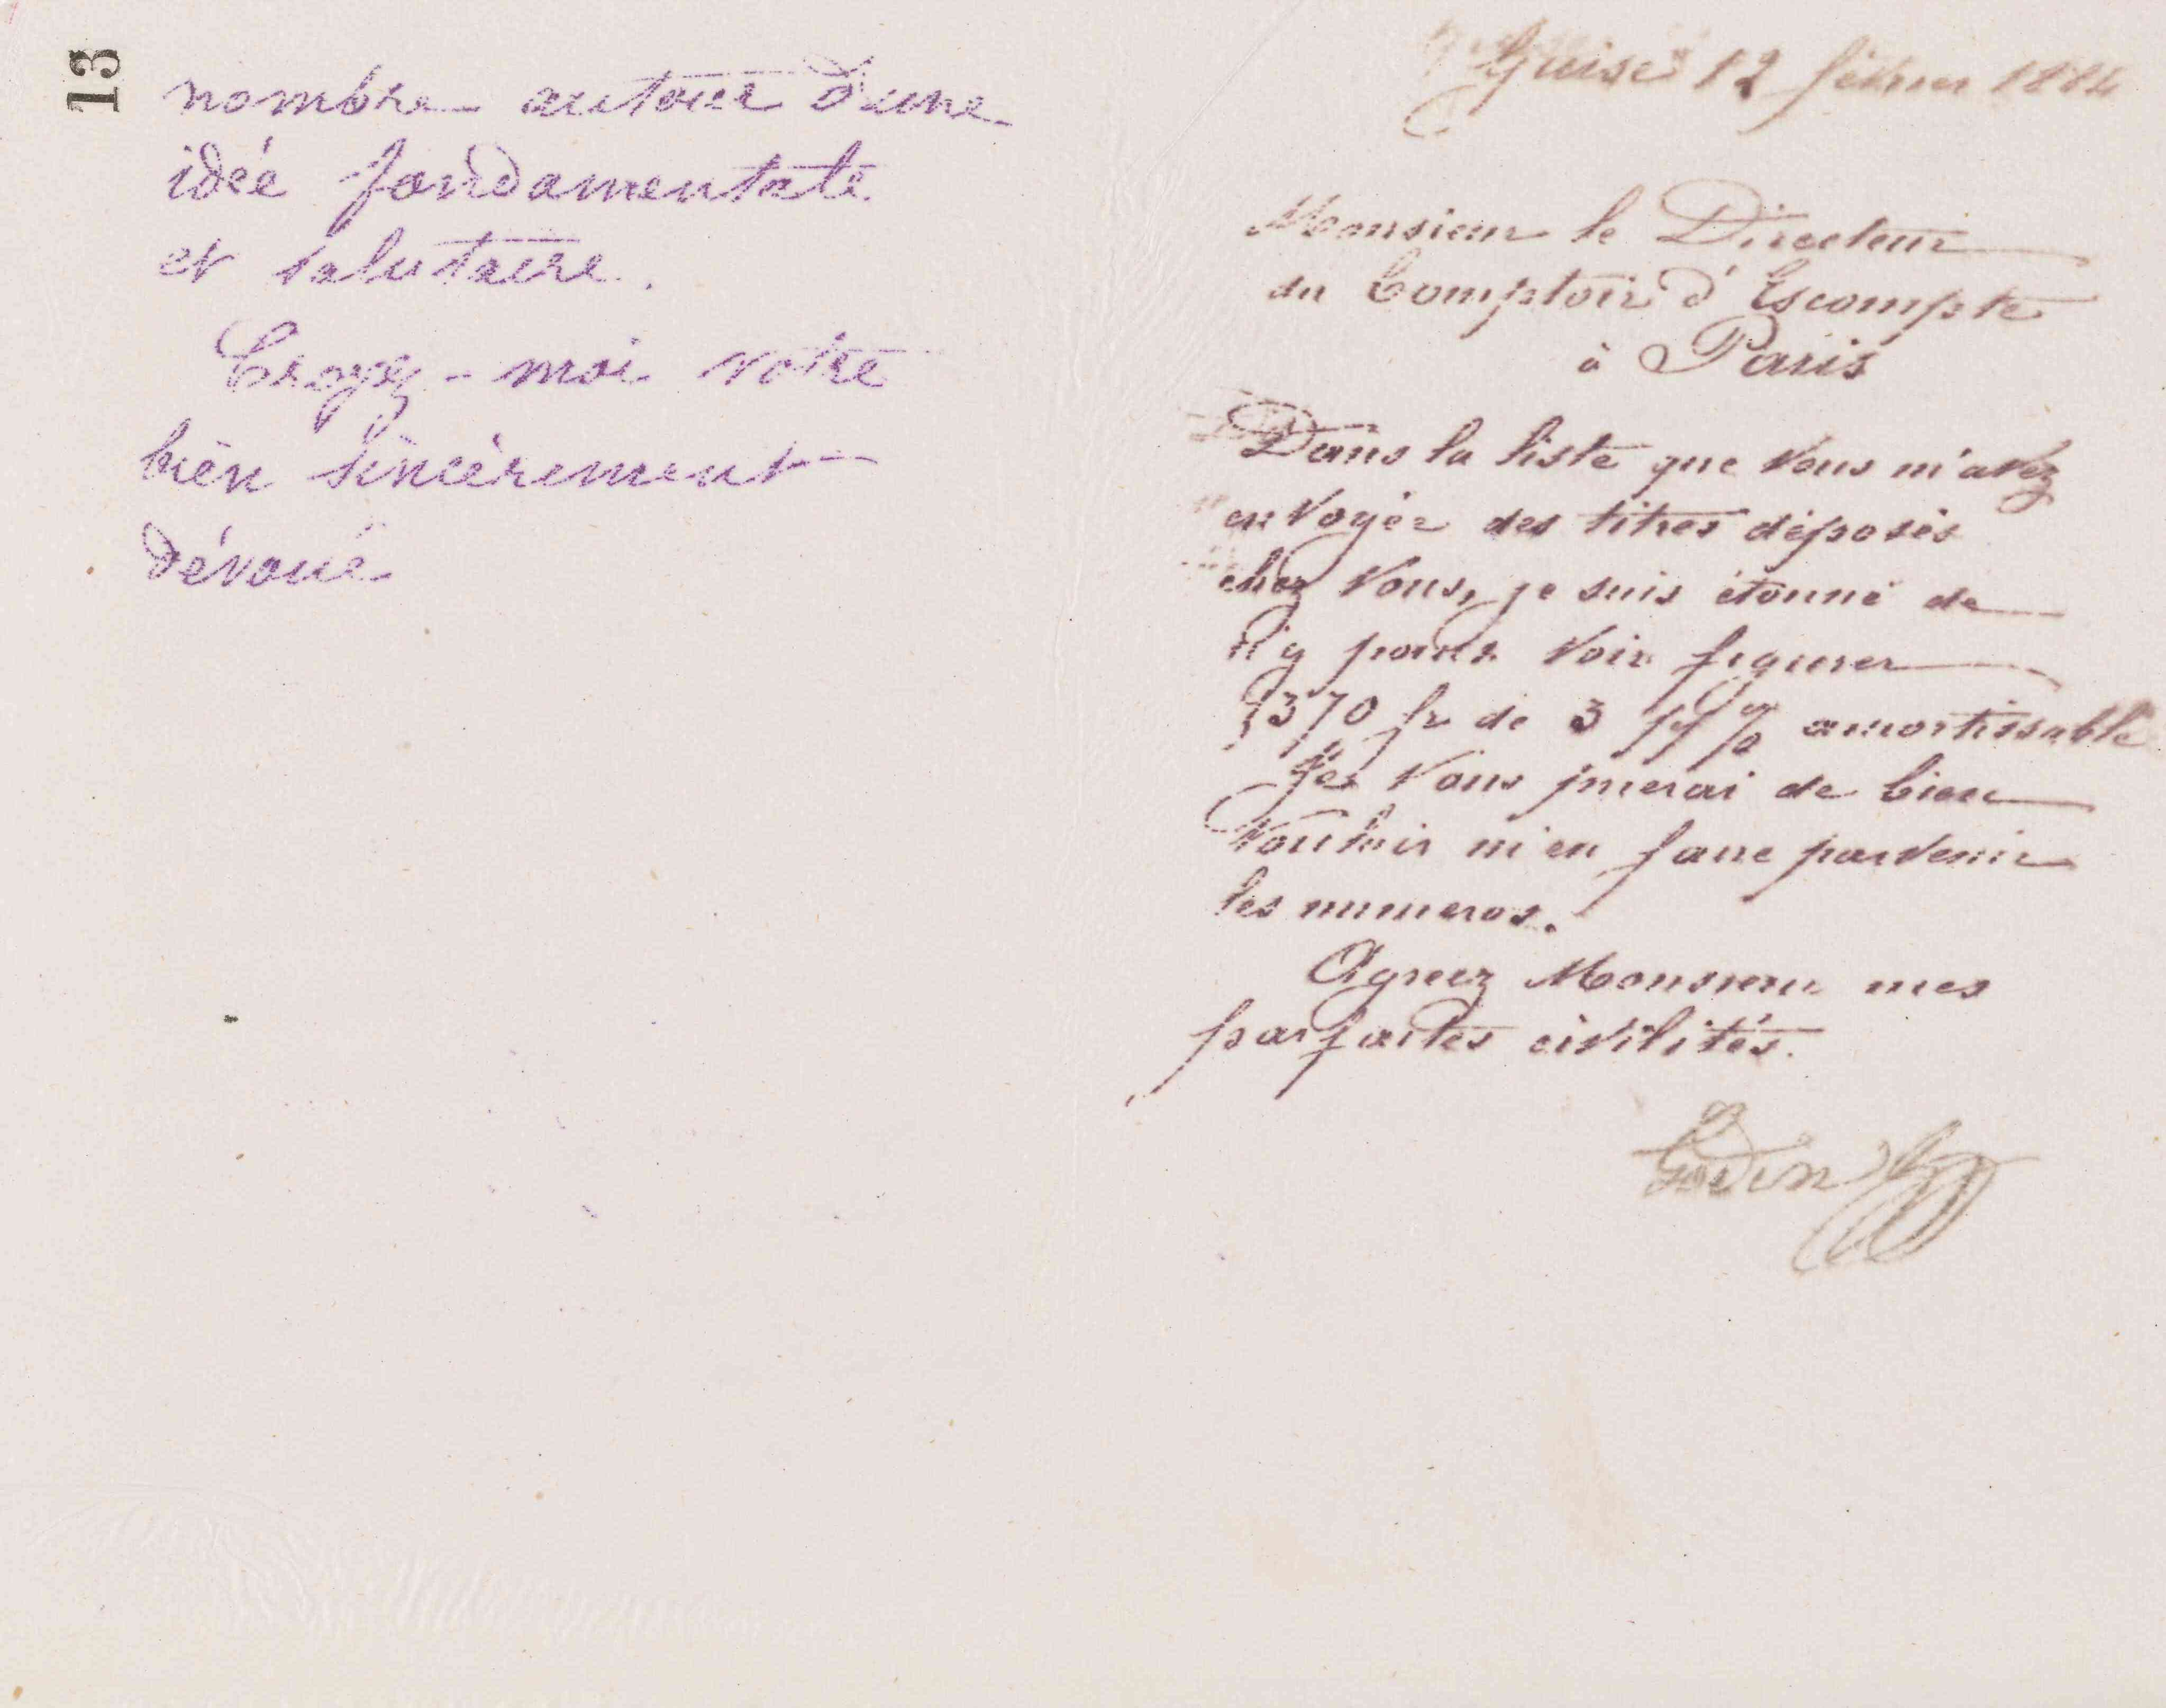 13
nombre autour d'une
idée fondamentale
et salutaire.
Croyez-moi votre
bien sincèrement
dévoué
Guise 12 février 1884
Monsieur le Directeur
du Comptoir d'Escompte
à Paris
Dans la liste que vous m'avez
envoyée des titres déposés
chez vous, je suis étonné de
n'y point voir figurer
1370 fr de 3 % amortissable
Je vous prierai de bien
vouloir m'en faire parvenir
les numeros.
Agreez Monsieur mes
parfaites civilités.
Godin